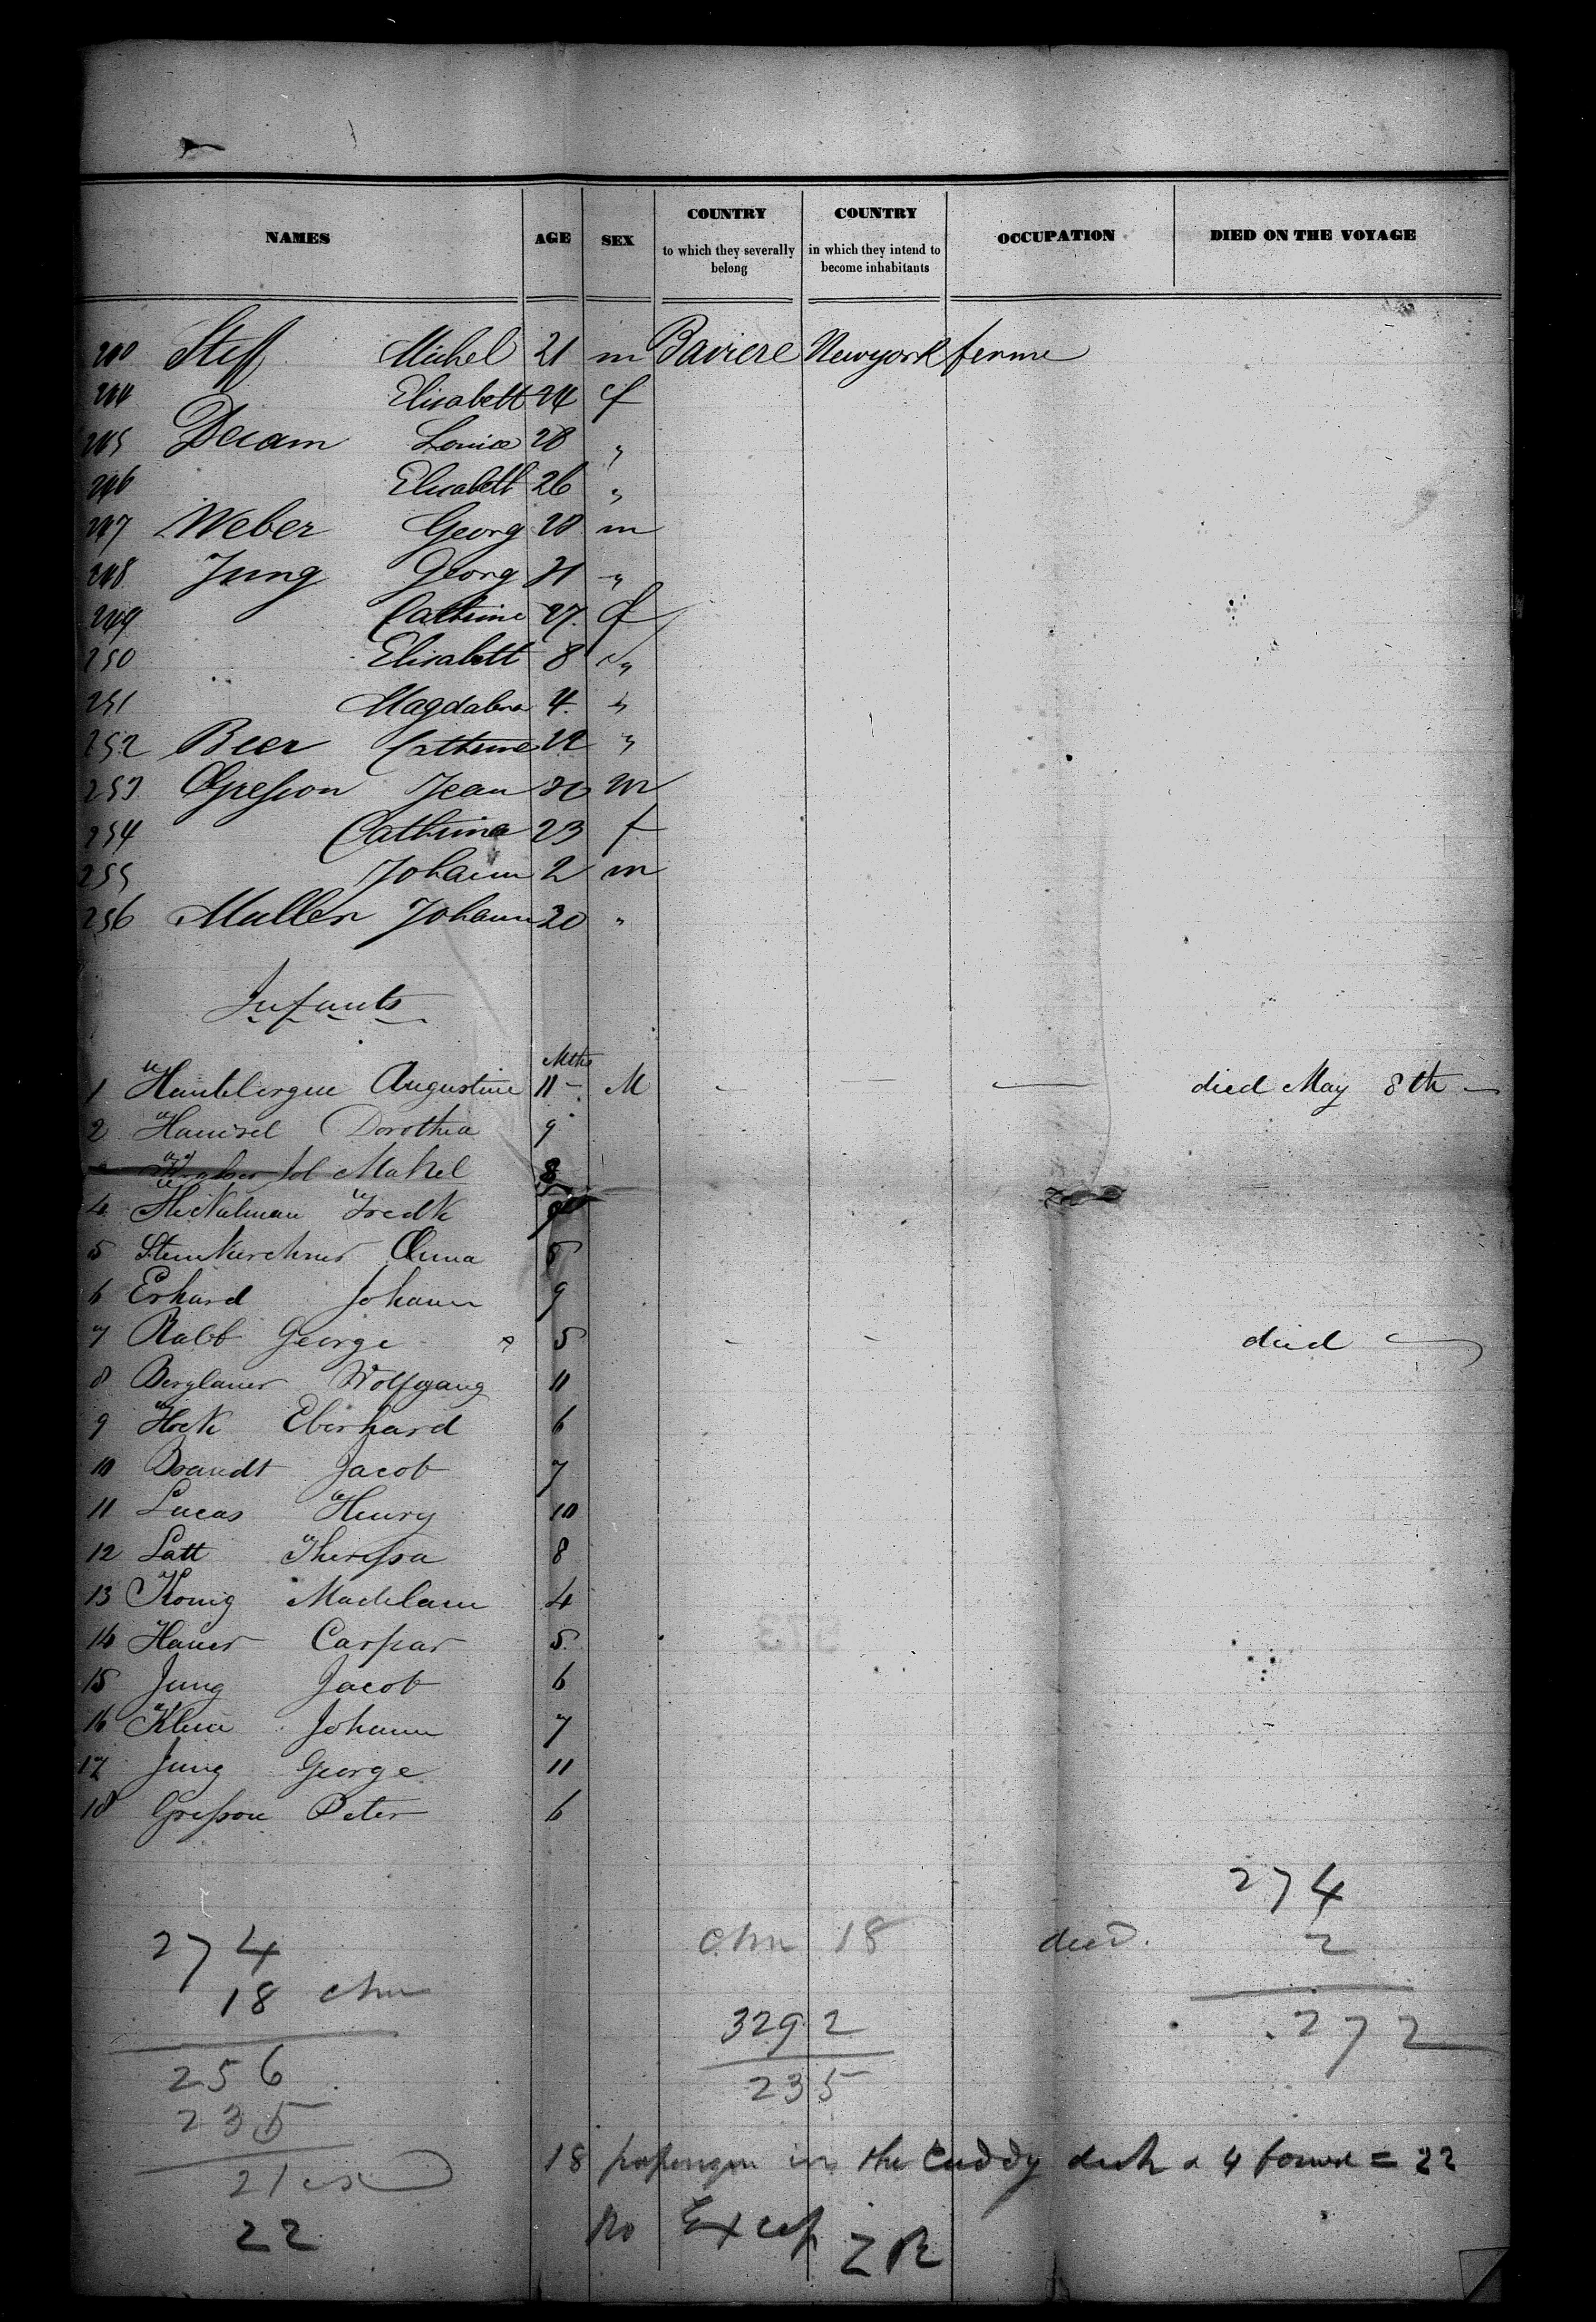 NAMES AGE SEX COUNTRY to which they severally belong COUNTRY in which they intend to become inhabitants OCCUPATION DIED ON THE VOYAGE
Steff Michel 21 m Baviere Newyork ferme
244 Elisabett 24 f
245 Louise 28 "
246 Elisabett 26 "
247 Weber Georg 28 m
248 Jung Georg 31 "
249 Cathrine 27 f
250 Elisabett 8 "
251 Magdalena 4 "
252 Beer Cathrine 22 "
253 Gresson Jean m
254 Cathrina 23 f
255 Johann 2 m
256 Muller Johann 20 "
Infants
Mths
1 Augustine 11 - M - - - died May 8th
2 Dorothea 9
8
4 Fredk 9
5 Steinkirchner Anna 8
6 Erhard Johann 9
7 Rabb George 5 - - died
8 Berglauer Wolfgang 11
9 Hock Eberhard 6
10 Brandt Jacob 7
11 Lucas Henry 10
12 Latt Theressa 8
13 Konig Madelane 4
14 Hauer Caspar 5
15 Jung Jacob 6
16 Klein Johann 7
17 Jung George 11
18 Gresson Peter 6
274
274 chn 18 died. 2
18 chn
3292 272
256 235
235
18 passengers in the cuddy deck & 4 forwd = 22
21 ex
22 No Excess ZR